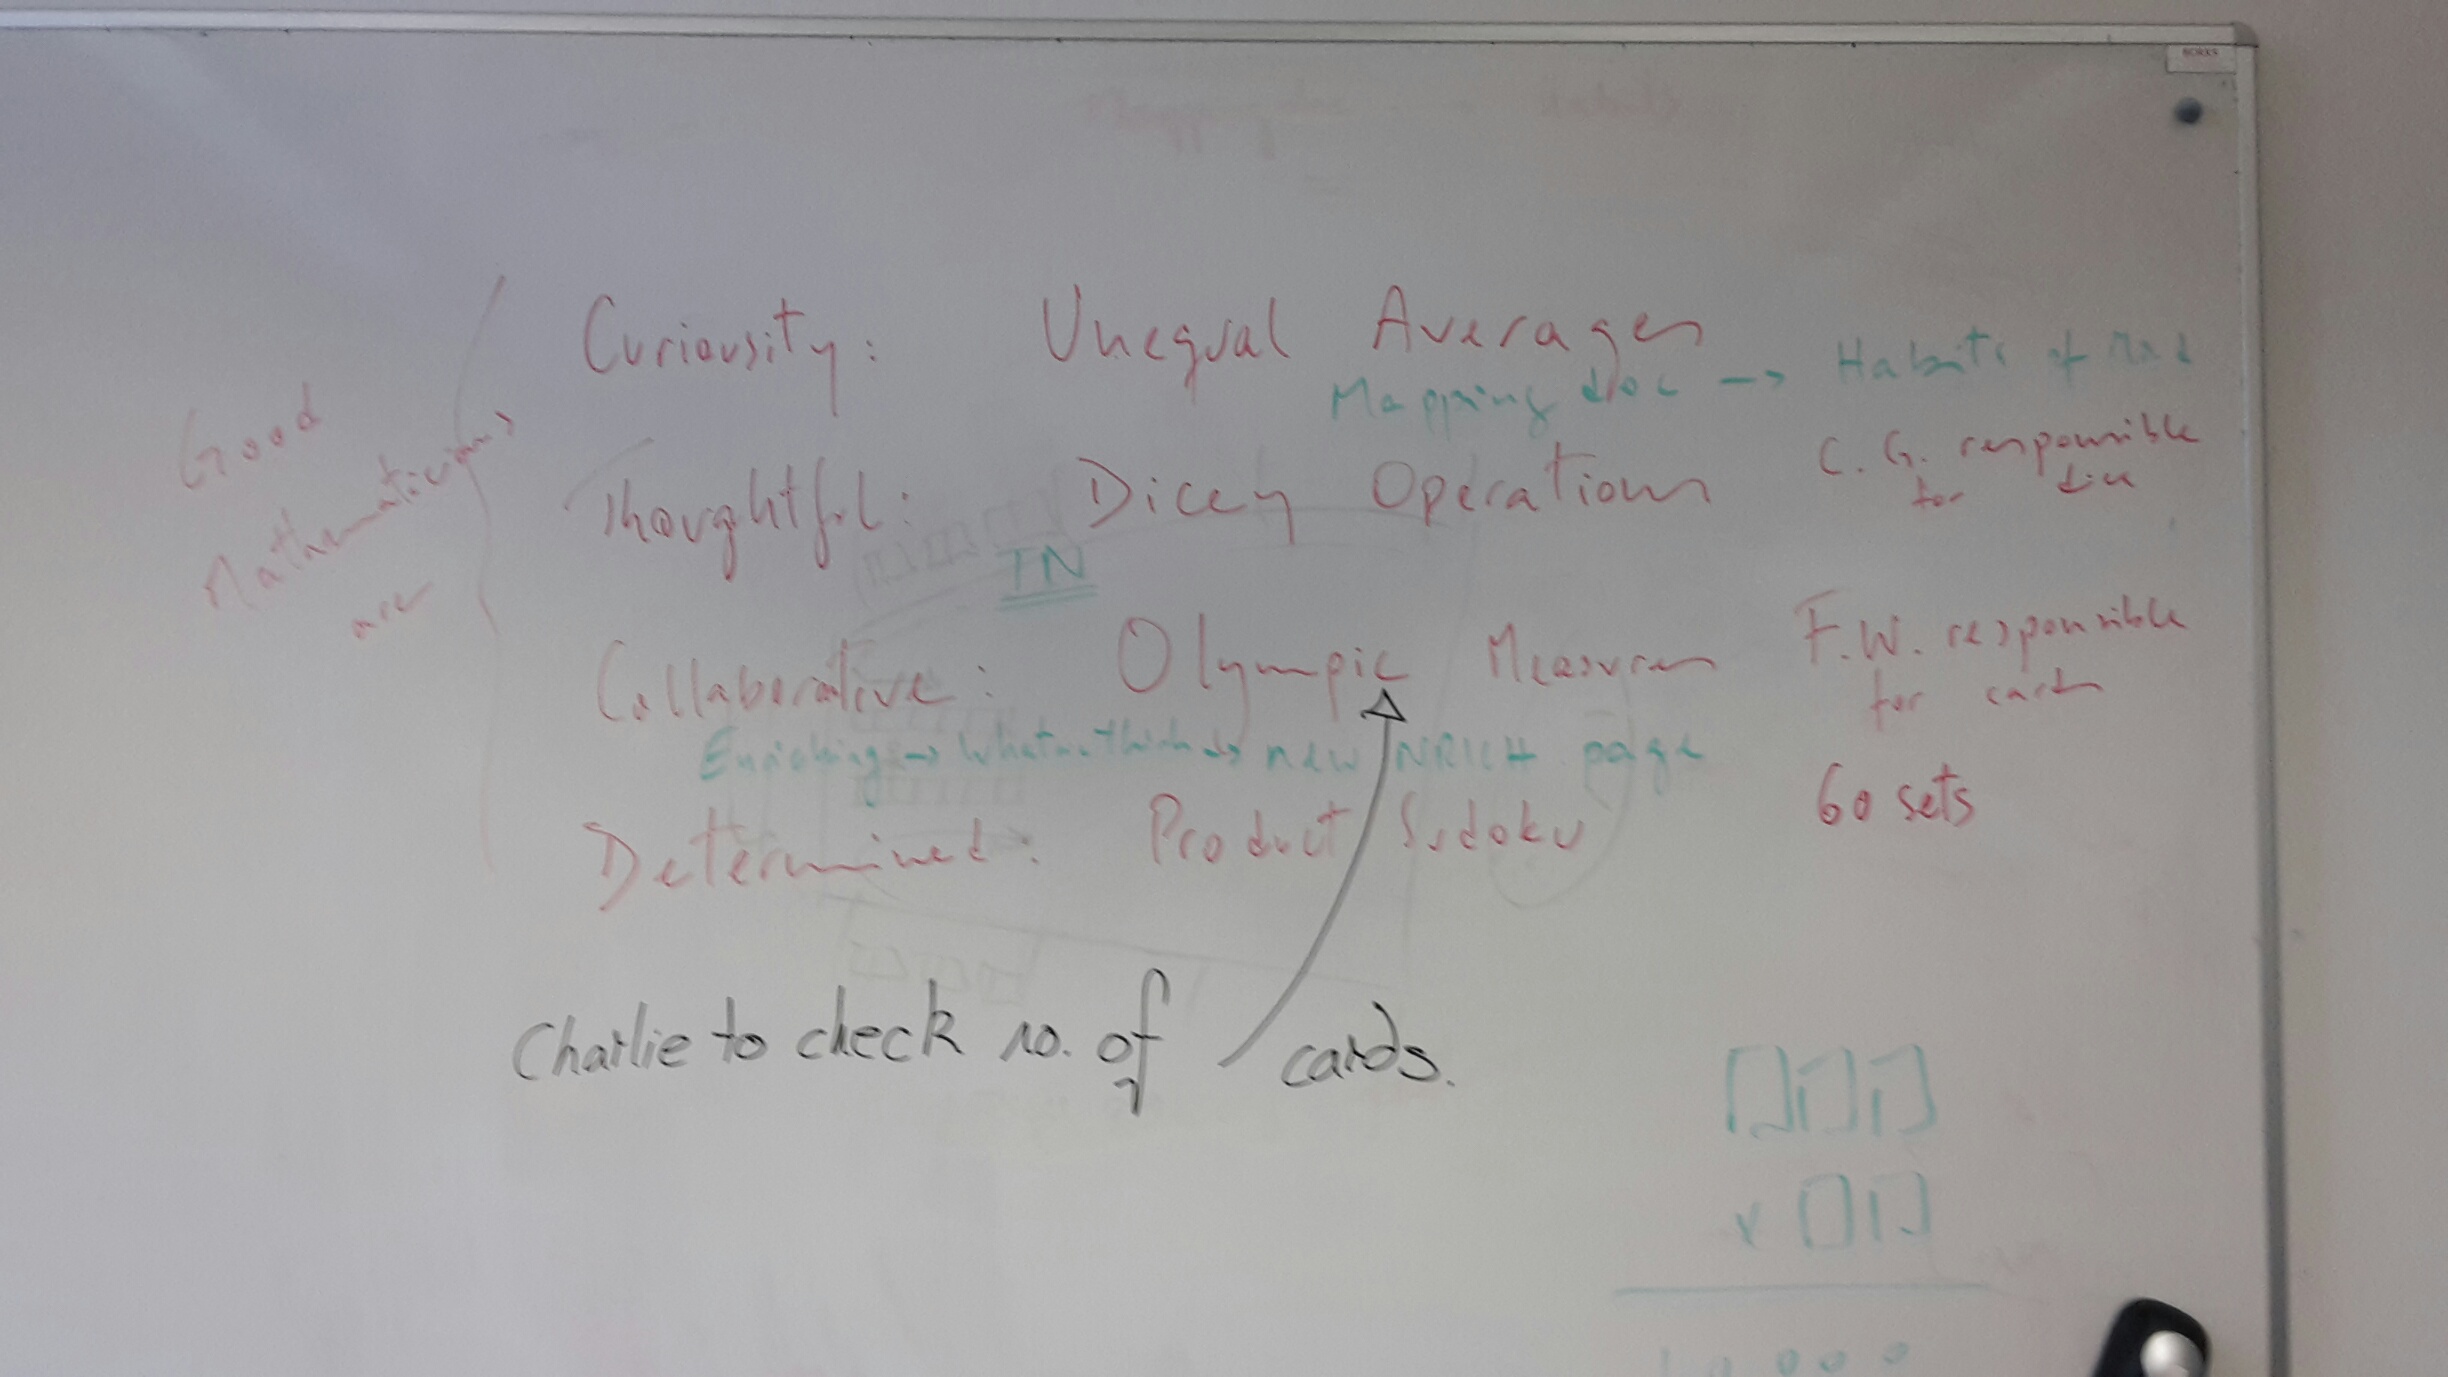 Good
Mathematicians
are
Curiousity: Unequal Averages
Mapping doc → Habits of Mind
Thoughtful: Dicey Operations
C. G. responsible
for dice
IN
Collaborative: Olympic Measures
F.W. responsible
for cards
Enriching → What we think → new NRICH page
Determined: Product Sudoku
60 sets
Charlie to check no. of cards.
x